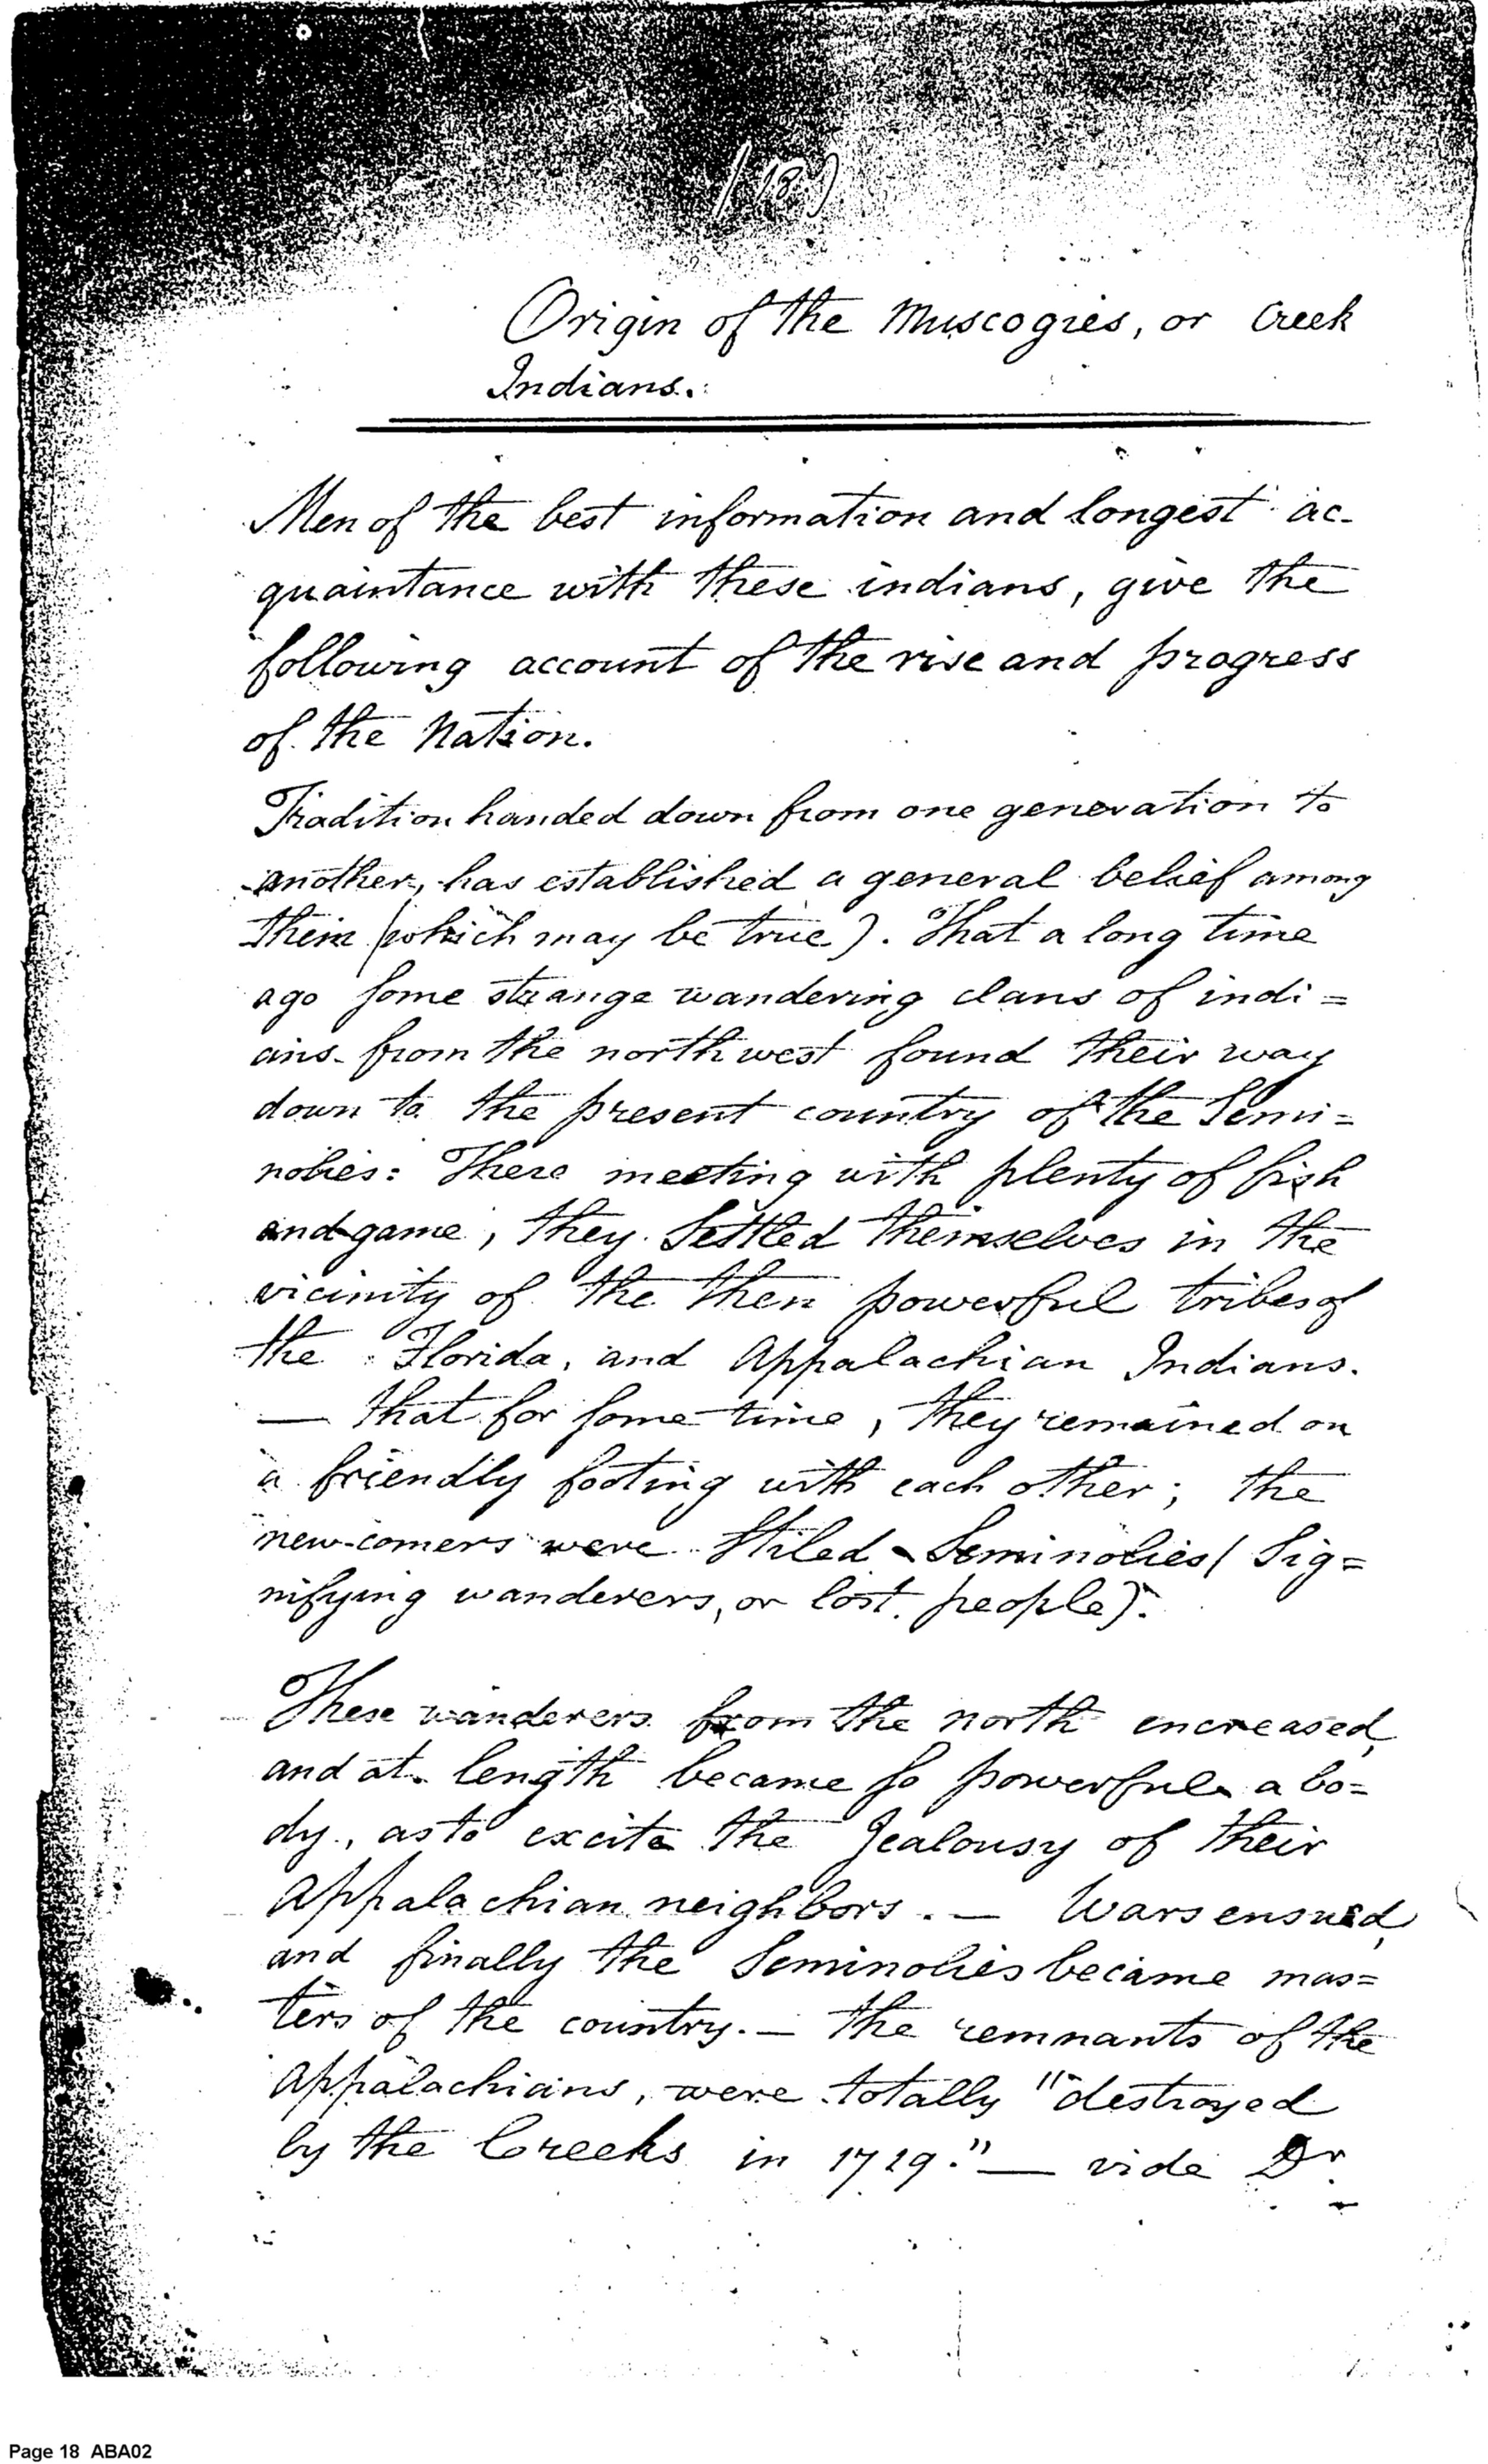 (18)
Origin of the Muscogies, or Creek
Indians.
Men of the best information and longest ac-
quaintance with these indians, give the
following account of the rise and progress
of the Nation.
Tradition handed down from one generation to
another, has established a general belief among
them (which may be true). That a long time
ago some strange wandering clans of indi=
ans from the northwest found their way
down to the present country of the Semi=
nolies: There meeting with plenty of fish
and game, they Settled themselves in the
vicinity of the then powerful tribes of
the Florida, and Appalachian Indians.
— that for some time, they remained on
a friendly footing with each other; the
new-comers were Stiled - Seminolies (Sig=
nifying wanderers, or lost people).
These wanderers from the north encreased,
and at length became so powerful a bo=
dy, as to excite the Jealousy of their
Appalachian neighbors. — Wars ensued,
and finally the Seminolies became mas=
ters of the country. — the remnants of the
Appalachians, were totally "destroyed
by the Creeks in 1719." — vide Dr.
Page 18 ABA02